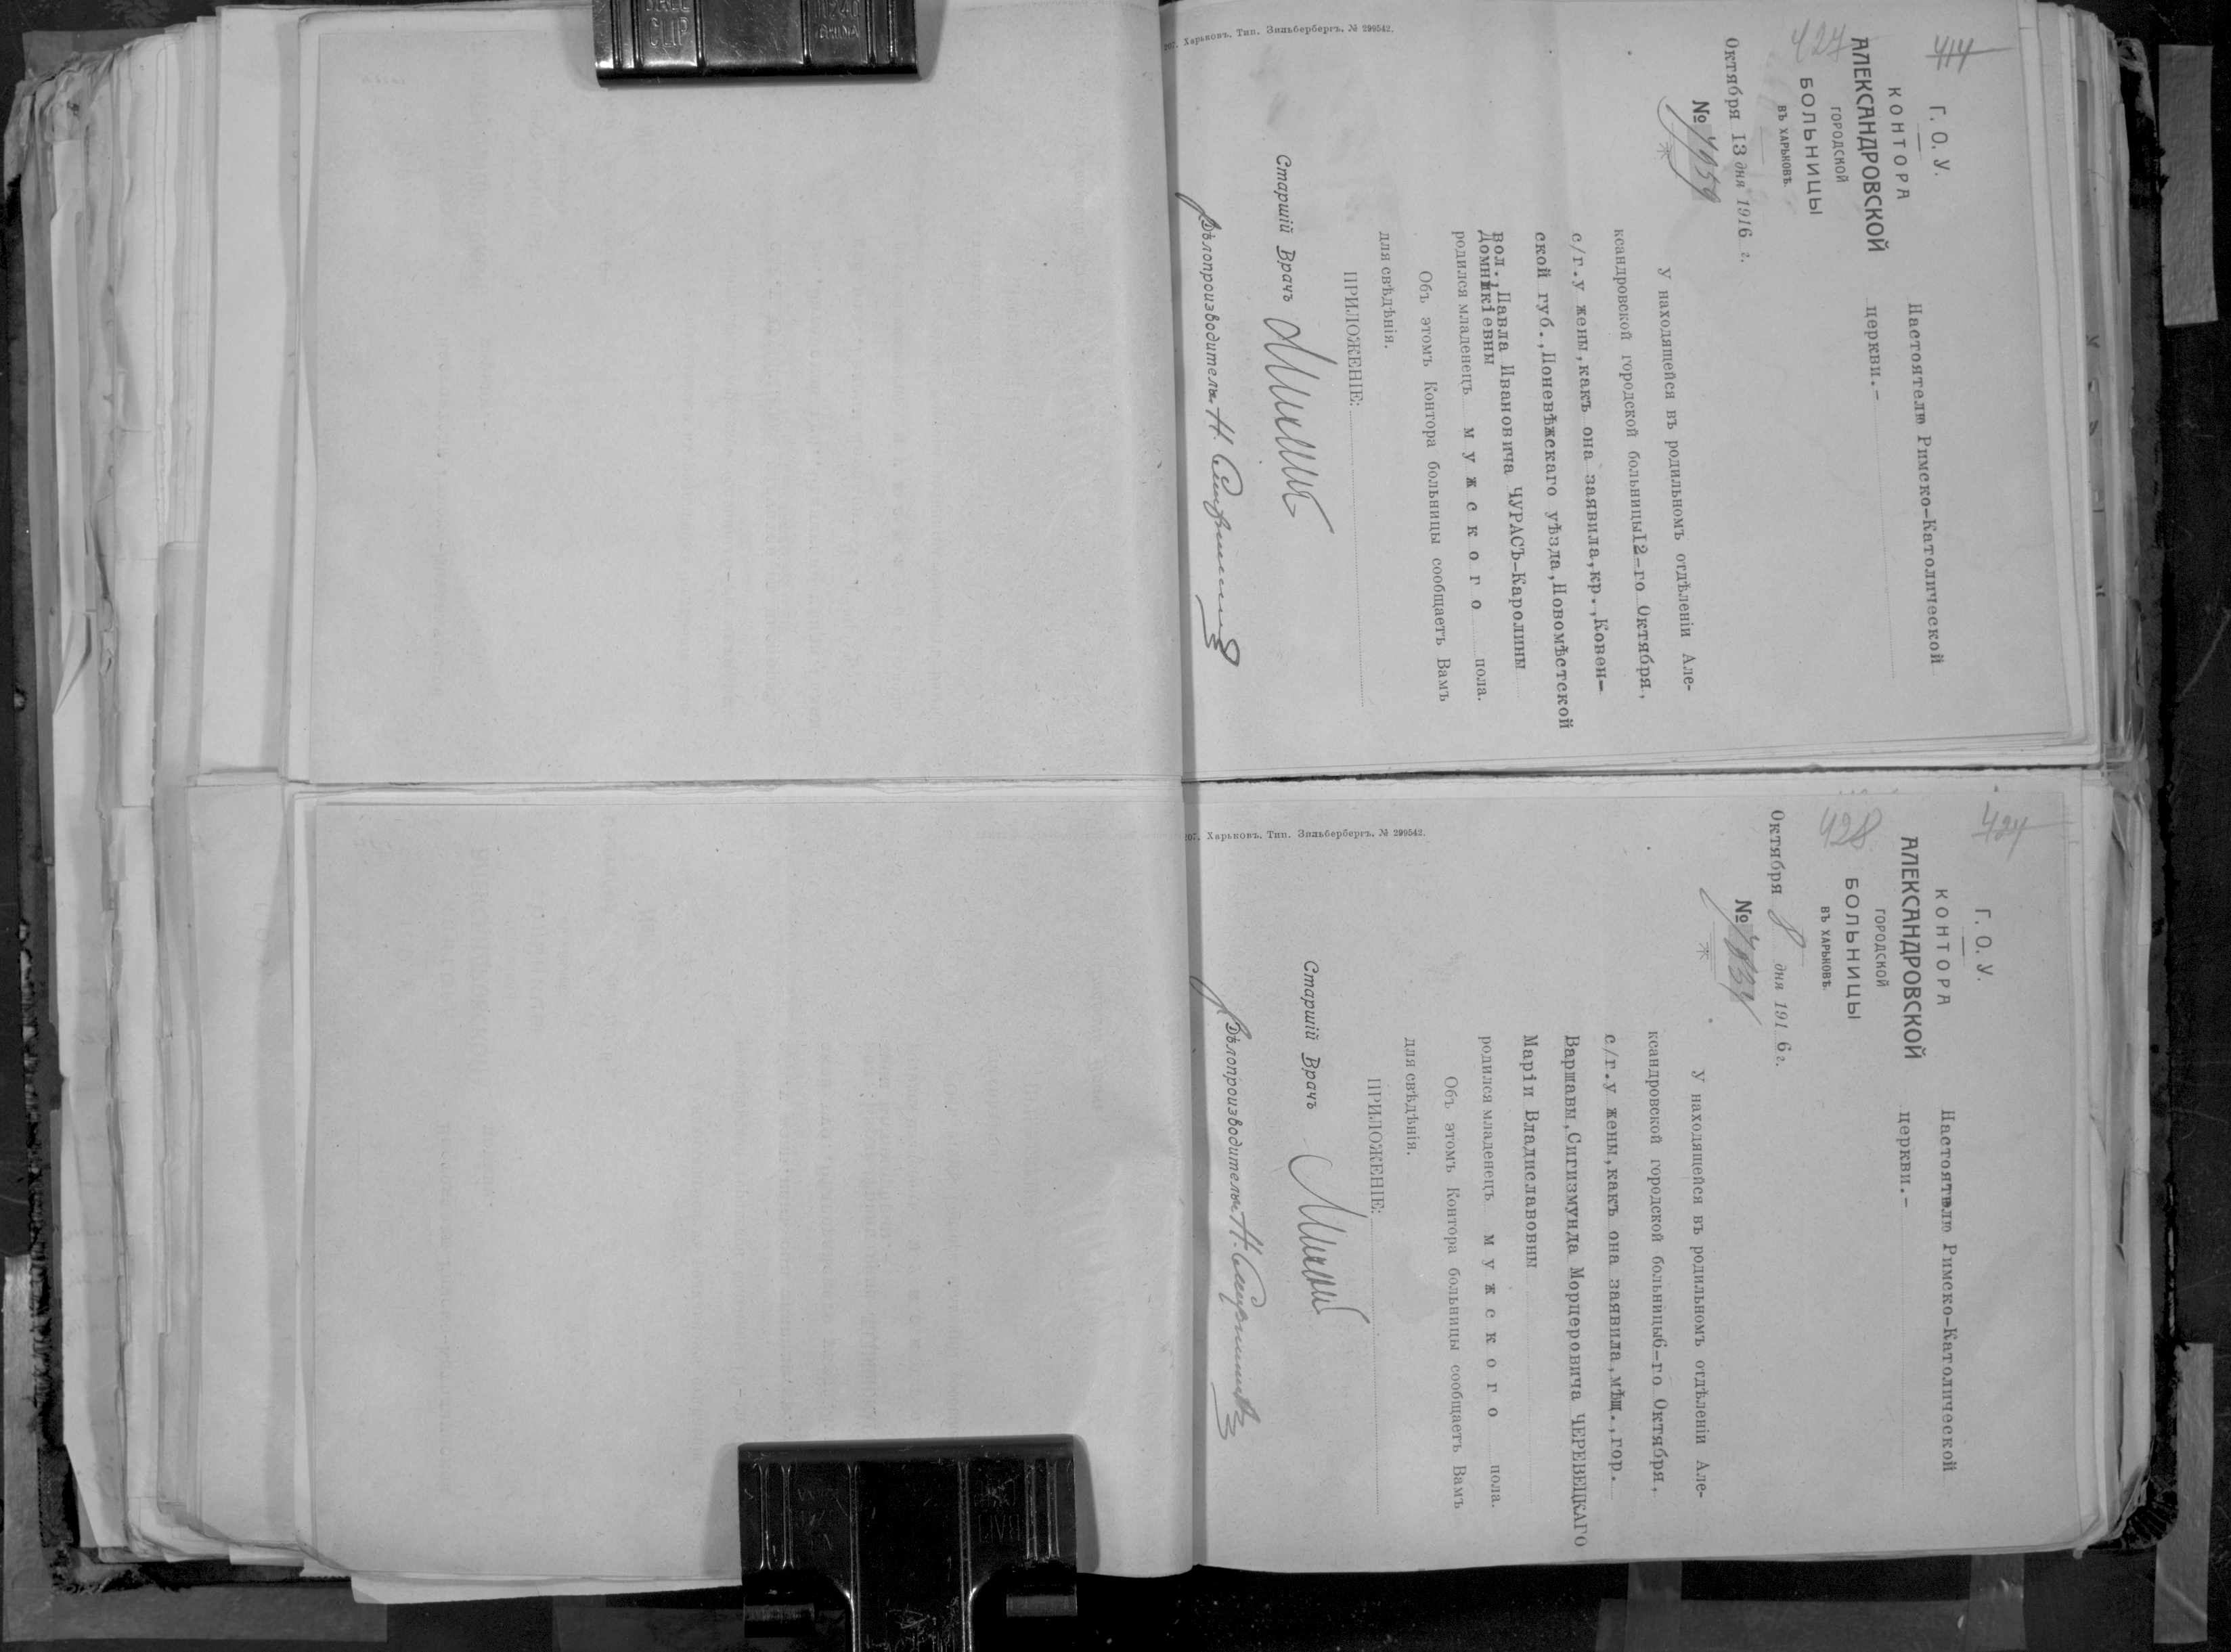 414
427
Г. О. У.
КОНТОРА
АЛЕКСАНДРОВСКОЙ
ГОРОДСКОЙ
БОЛЬНИЦЫ
ВЪ ХАРЬКОВѢ.
Октября 13 дня 1916 г.
№ 7959
Настоятелю Римско-Католической
церкви.-
У находящейся въ родильномъ отдѣленіи Але-
ксандровской городской больницы 12-го Октября,
с/г.у жены,какъ она заявила,кр.,Ковен-
ской губ.,Поневѣжскаго уѣзда,Новомѣстской
вол., Павла Ивановича ЧУРАСЪ-Каролины
Домникіевны
родился младенецъ мужского пола.
Объ этомъ Контора больницы сообщаетъ Вамъ
для свѣдѣнія.
ПРИЛОЖЕНІЕ:
Старшій Врачъ
Дѣлопроизводитель Н.
207. Харьковъ. Тип. Зильбербергъ. № 299542.
424
428
Г. О. У.
КОНТОРА
АЛЕКСАНДРОВСКОЙ
ГОРОДСКОЙ
БОЛЬНИЦЫ
ВЪ ХАРЬКОВѢ.
Октября 8 дня 1916 г.
№
Настоятелю Римско-Католической
церкви.-
У находящейся въ родильномъ отдѣленіи Але-
ксандровской городской больницы 6-го Октября,
с/г.у жены,какъ она заявила,мѣщ.,гор.
Варшавы,Сигизмунда Морцеровича ЧЕРЕВЕЦКАГО
Маріи Владиславовны
родился младенецъ мужского пола.
Объ этомъ Контора больницы сообщаетъ Вамъ
для свѣдѣнія.
ПРИЛОЖЕНІЕ:
Старшій Врачъ
Дѣлопроизводитель Н.
207. Харьковъ. Тип. Зильбербергъ. № 299542.